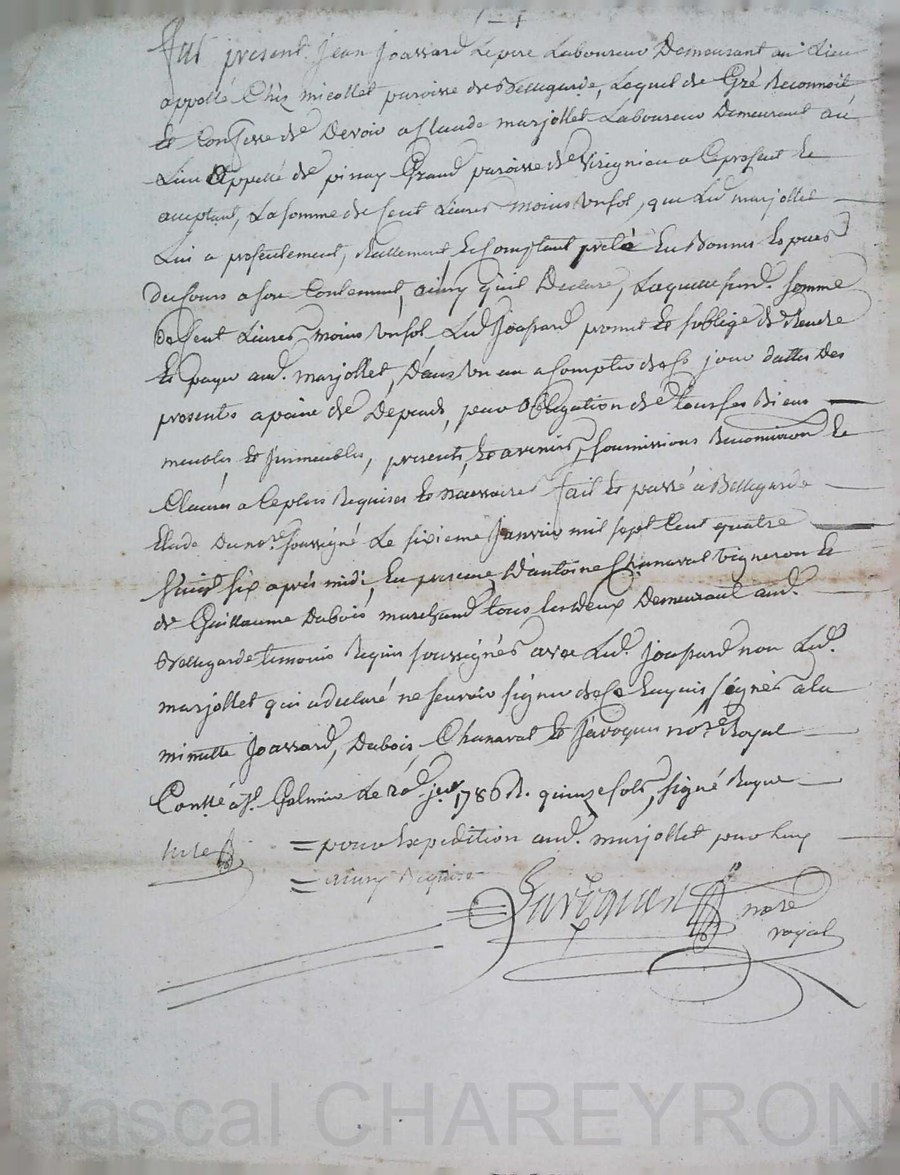 Fut present Jean Joassard Le pere Laboureur Demeurant au Lieu
appellé Chéz micollet paroisse de Bellegarde, Lequel de Gré Reconnoit
Et Confesse de Devoir a Claude marjollet Laboureur Demeurant au
Lieu Appellé de Grand paroisse de a Ce present Et
acceptant, La somme de Cent Livres moins un sol, que Led. marjollet
Lui a presentement, Réellement Et Comptant preté En Bonnes Especes
Du Cours a son Contentement, ainsy qu'il Declare, Laquelle somme
De Cent Livres moins un sol Led. Joassard promet Et s'oblige de Rendre
Et payer aud. marjollet, Dans un an a Compter de Ce jour datte Des
presentes a peine de Depends, pour obligation de tous ses Biens
meubles, Et Immeubles, presents, Et avenirs, soumissions Renonciations Et
Clauses a Ce plus Requises Et necessaires fait Et passé a Bellegarde
Etude Du no.re soussigné Le sixieme Janvier mil sept Cent quatre
vingt six aprés midi, En presence D'antoine Chanaval vigneron Et
de Guillaume Dubois marchand tous Les deux Demeurant aud.
Bellegarde temoins Requis soussignés avec Led. Joassard non Led.
marjollet qui a declaré ne sçavoir signer de Ce Enquis signés a la
minutte Joassard, Dubois, Chanaval Et Javoguer no.re Royal
Con.llé a S.t Galmier Le 20 1786 R. quinze sols, signé
pour Expedition aud. marjollet
ainsy Requise
Javoguer no.re
royal
Pascal CHAREYRON